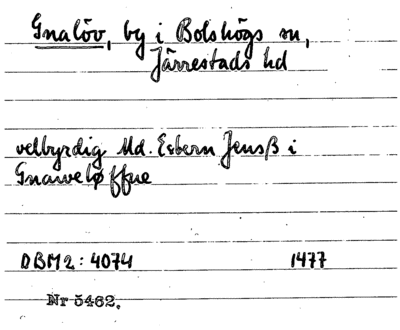 Gnalöv, by i Bolshögs sn,
Järrestads hd
velbyrdig Md. Esbern Jensß i
Gnaweløffue
DBM2: 4074 1477
Nr 5462.